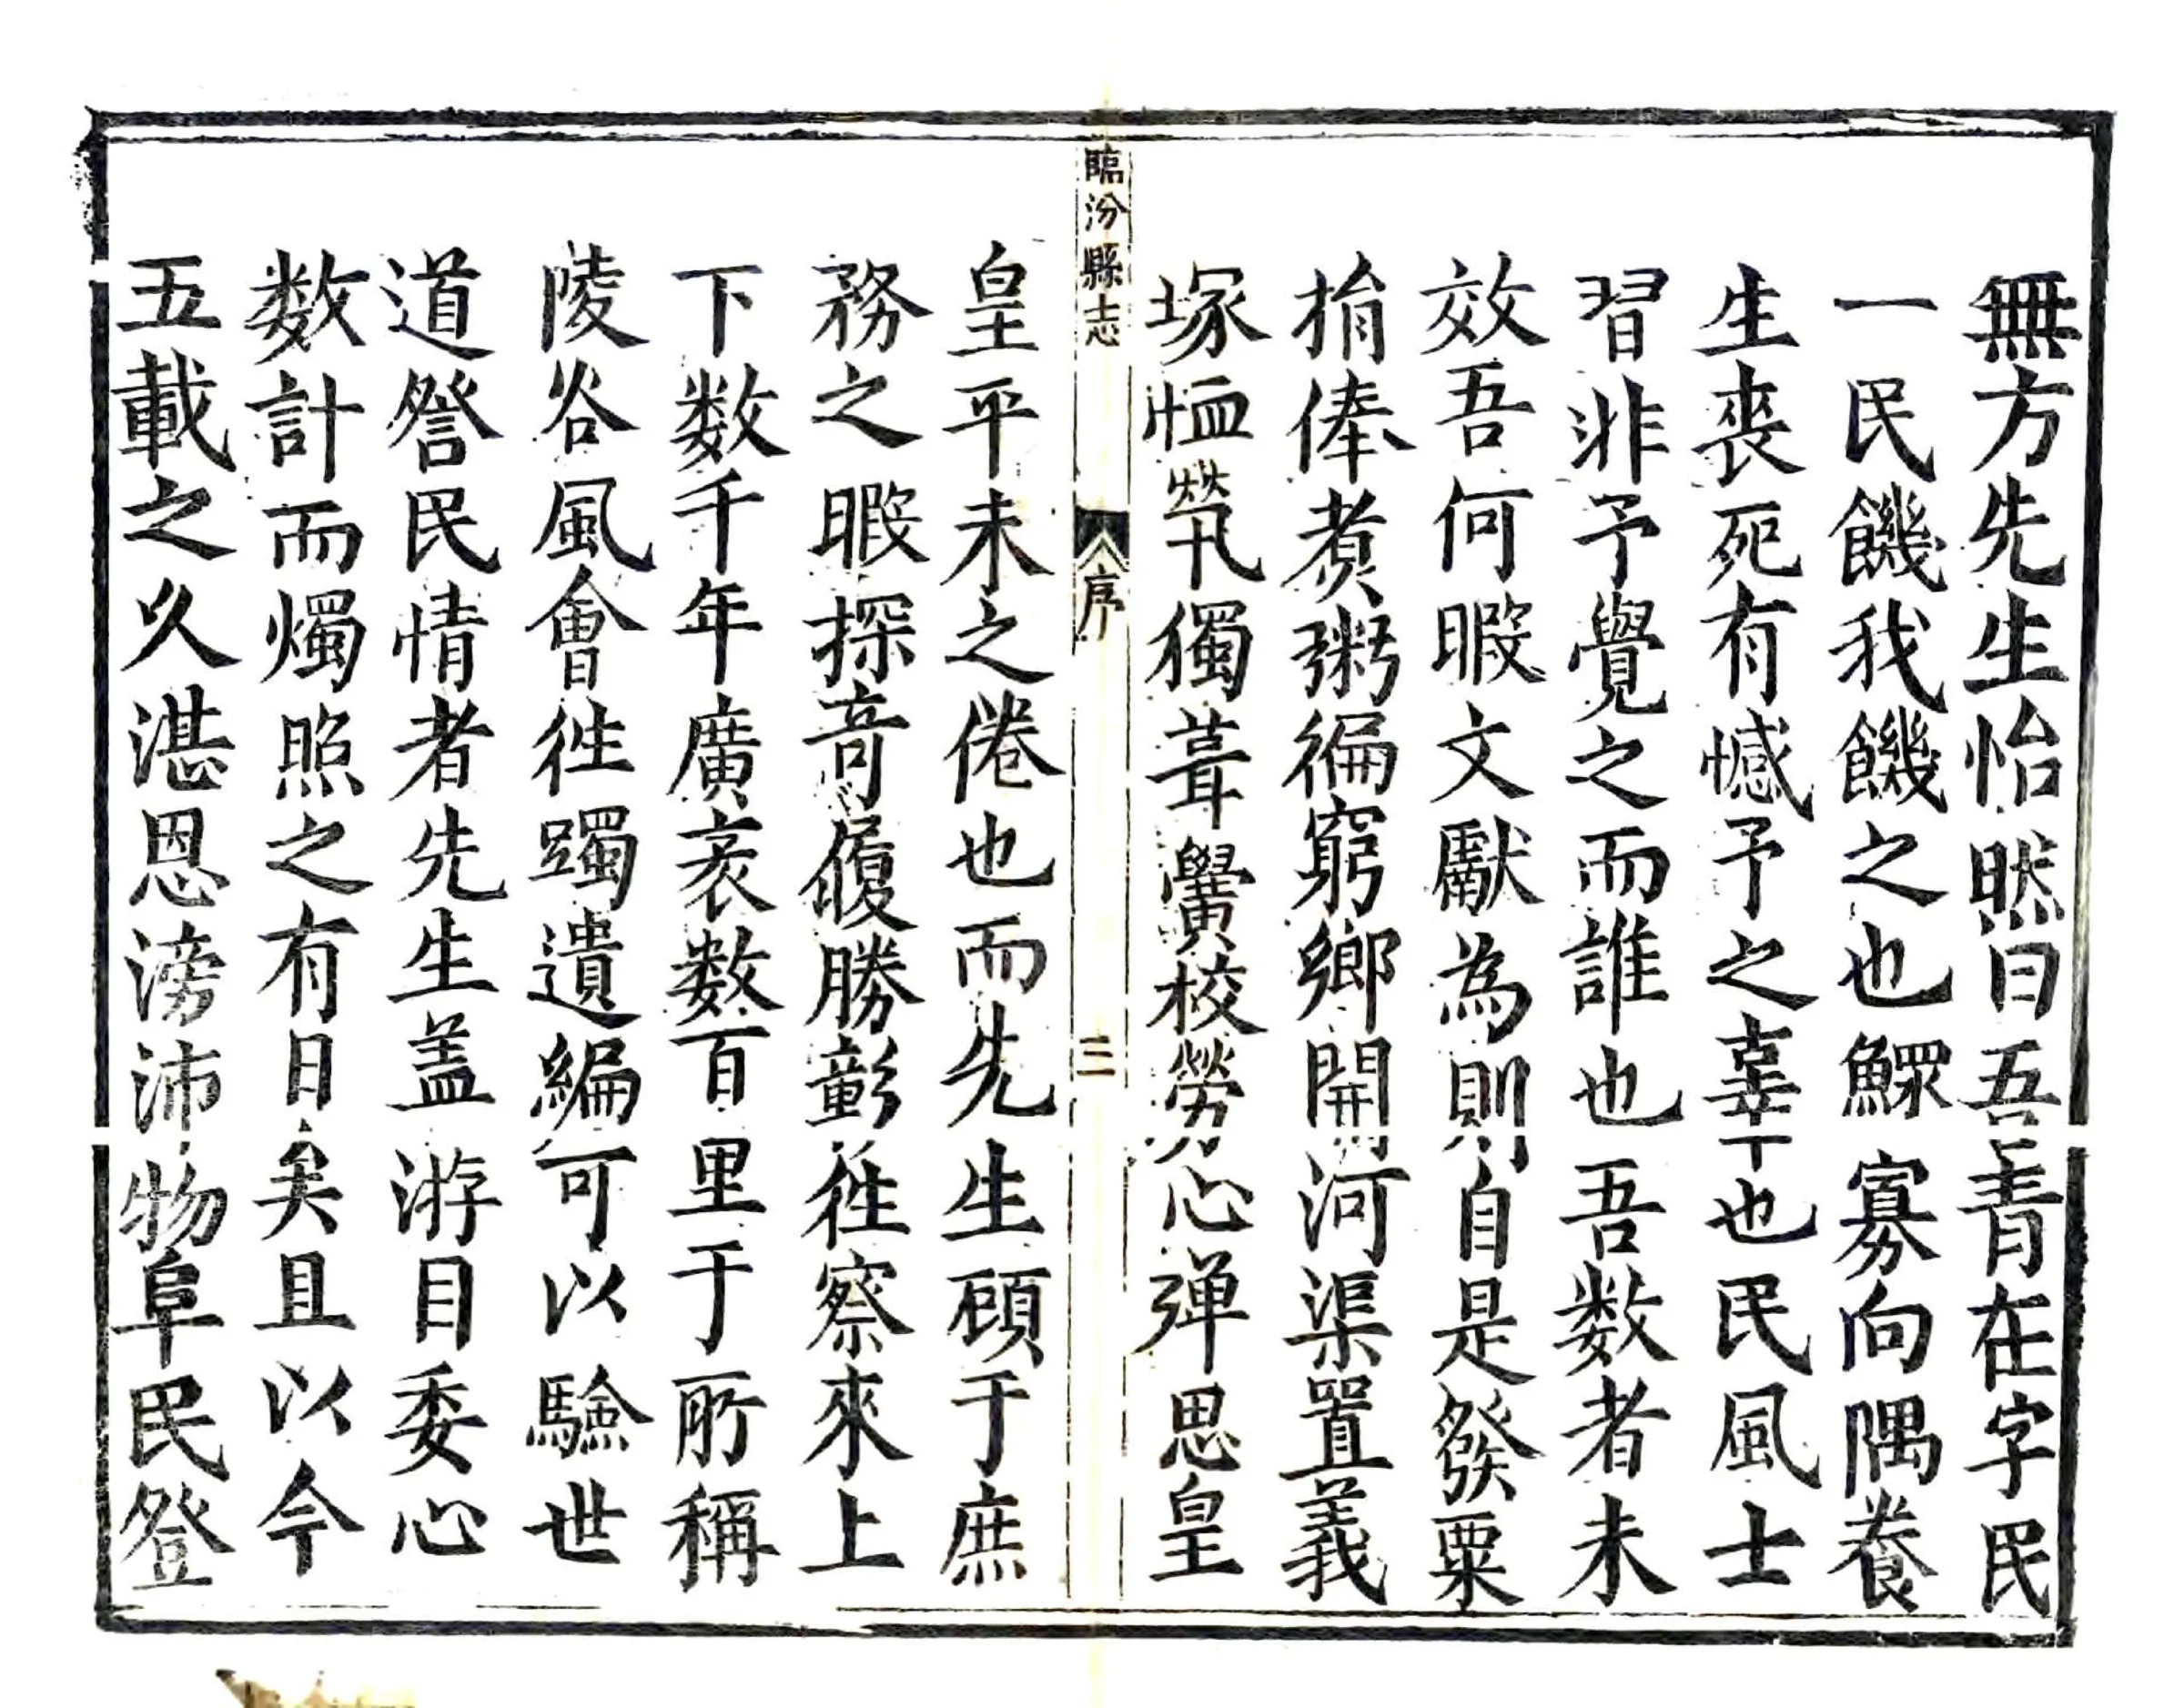 無方先生怡然曰吾青在字民
一民饑我饑之也鰥寡向隅養
生丧死有憾予之辜也民風士
習非予覺之而誰也吾数者未
效吾何暇文獻為則自是發粟
捐俸煮粥徧窮鄉開河渠置義
塚恤煢獨葺黌校勞心殚思皇
臨汾縣志
序
三
皇乎未之倦也而先生顧于庶
務之暇探竒履勝彰徃察來上
下数千年廣袤数百里于所稱
陵谷風會徃躅遺編可以驗世
道詧民情者先生盖游目委心
数計而燭照之有日矣且以今
五載之久湛恩滂沛物阜民登